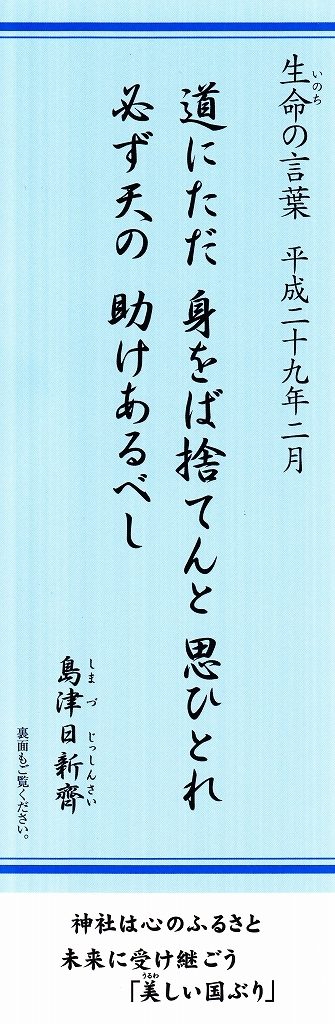 生命の言葉　平成二十九年二月
いのち
道にただ 身をば捨てんと 思ひとれ
必ず天の 助けあるべし
島津日新齊
しまづじっしんさい
裏面もご覧ください。
神社は心のふるさと
未来に受け継ごう
「美しい国ぶり」
うるわ